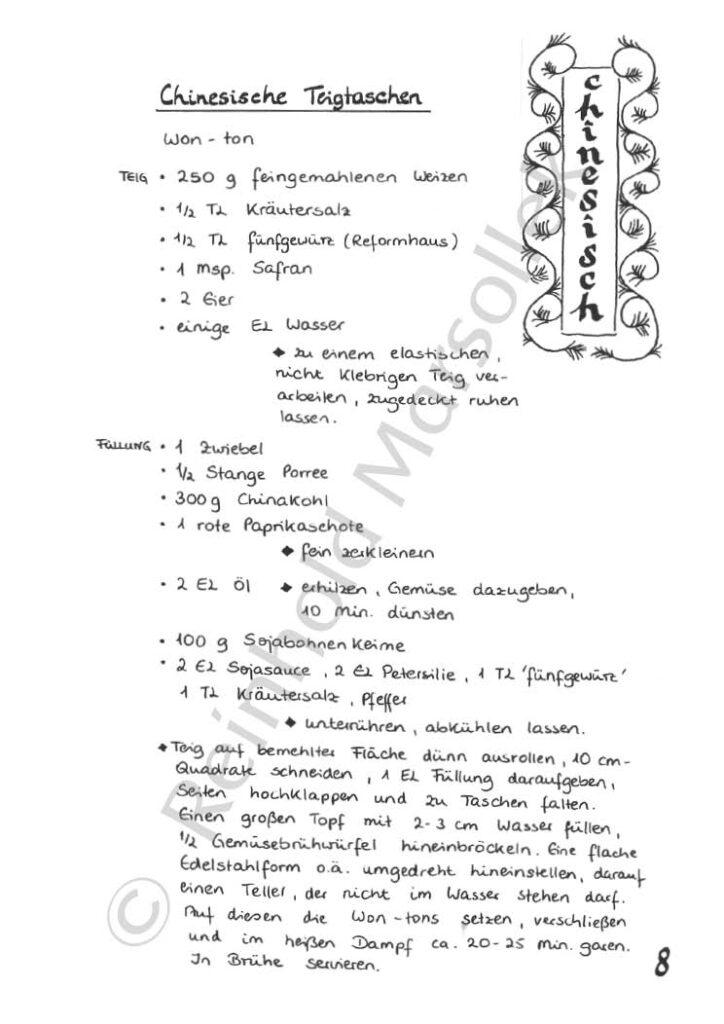 Chinesische Teigtaschen
chinesisch
Won-ton
TEIG • 250 g feingemahlenen Weizen
• 1/2 TL Kräutersalz
• 1/2 TL fünfgewürz (Reformhaus)
• 1 Msp. Safran
• 2 Eier
• einige EL Wasser
◆ zu einem elastischen,
nicht klebrigen Teig ver-
arbeiten, zugedeckt ruhen
lassen.
FÜLLUNG • 1 Zwiebel
• 1/2 Stange Porree
• 300 g Chinakohl
• 1 rote Paprikaschote
◆ fein zerkleinern
• 2 EL Öl ◆ erhitzen, Gemüse dazugeben,
10 Min. dünsten
• 100 g Sojabohnen Keime
• 2 EL Sojasauce, 2 EL Petersilie, 1 TL 'fünfgewürz'
1 TL Kräutersalz, Pfeffer
◆ unterrühren, abkühlen lassen.
◆ Teig auf bemehlter Fläche dünn ausrollen, 10 cm-
Quadrate schneiden, 1 EL Füllung daraufgeben,
Seiten hochklappen und zu Taschen falten.
Einen großen Topf mit 2-3 cm Wasser füllen,
1/2 Gemüsebrühwürfel hineinbröckeln. Eine flache
Edelstahlform o.ä. umgedreht hineinstellen, darauf
einen Teller, der nicht im Wasser stehen darf.
Auf diesen die Won-tons setzen, verschließen
und im heißen Dampf ca. 20-25 Min. garen.
In Brühe servieren.
8
© Reinhold Marsollek